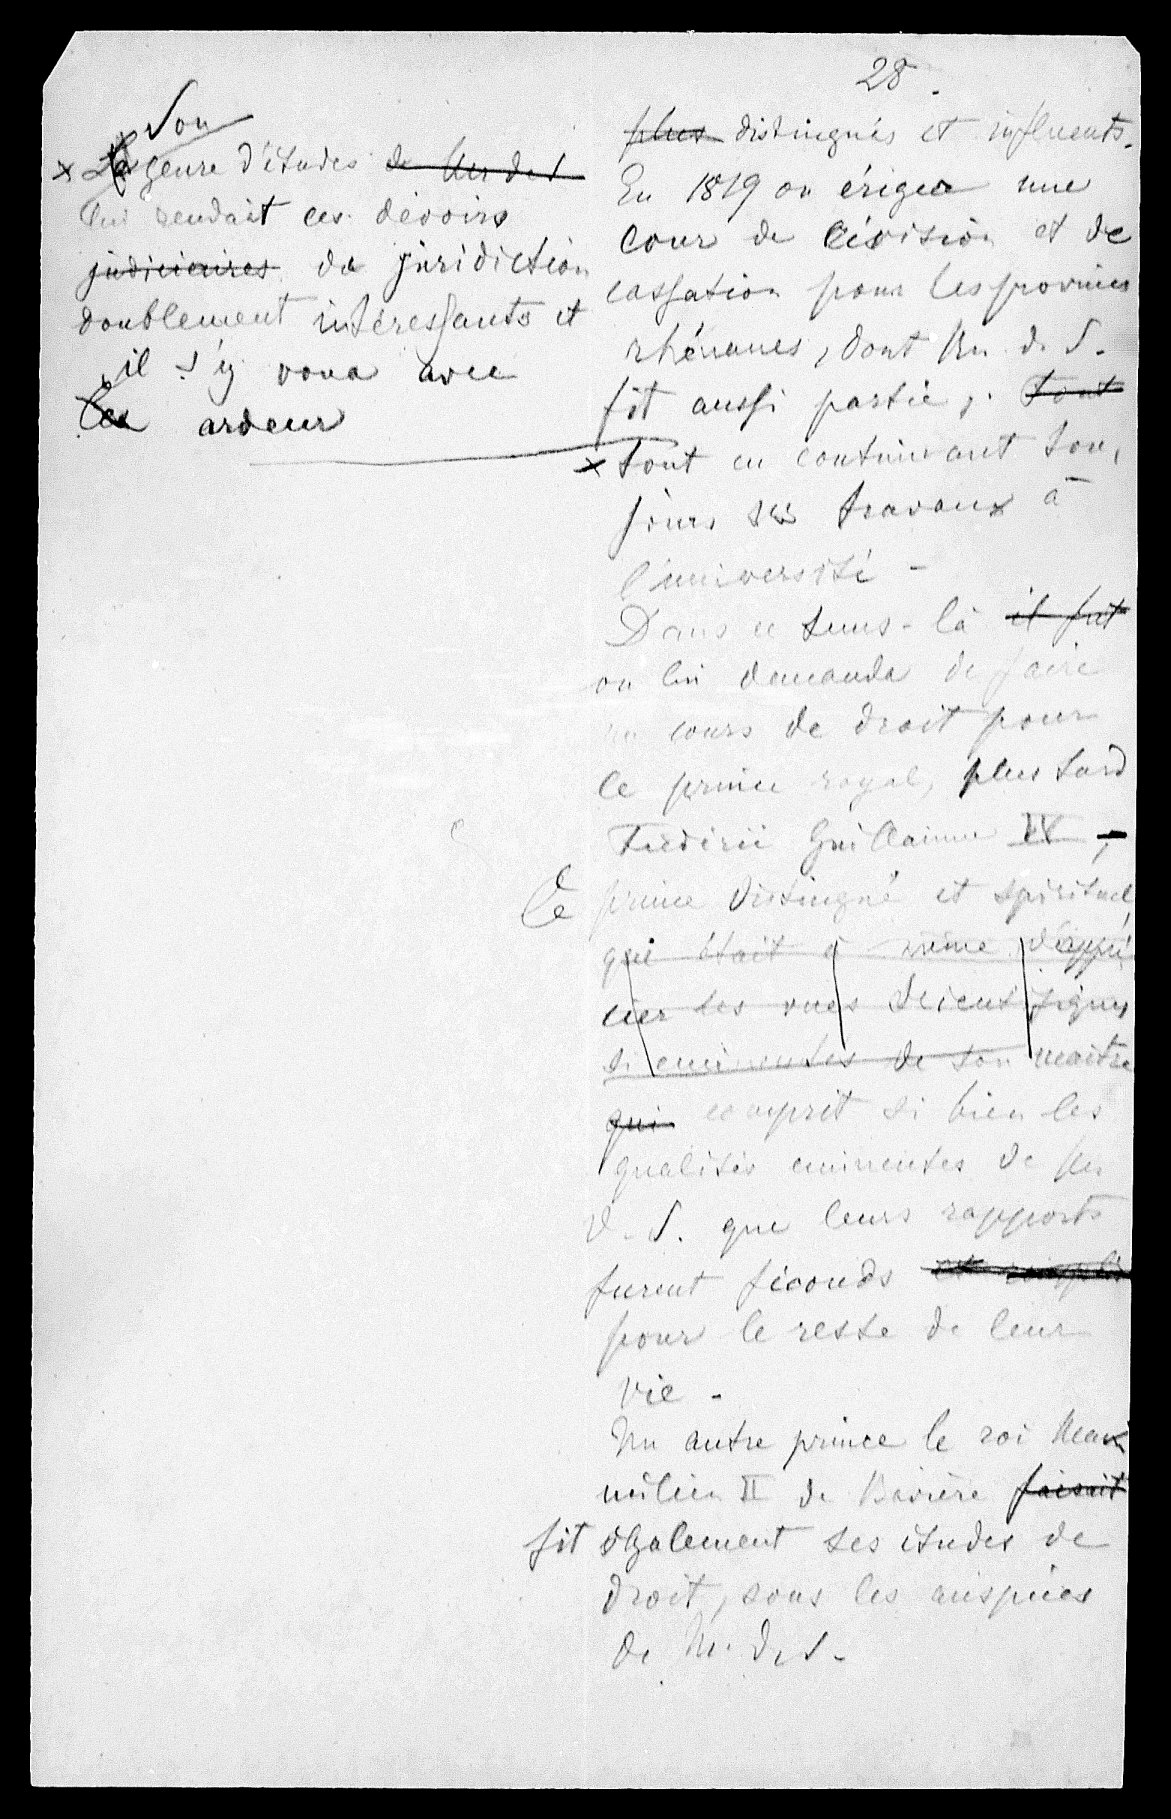 28.
Son
x Le genre d'études de Mr de S
lui rendait ces devoirs
judiciaires de juridiction
doublement intéressants et
il s'y voua avec
ardeur
plus distingués et influents.
En 1819 on érigea une
Cour de révision et de
cassation pour les provinces
rhénanes, dont Mr. d. S.
fit aussi partie,. tout
x tout en continuant tou,
jours ses travaux à
l'université -
Dans ce tems-là il fut
on lui demanda de faire
un cours de droit pour
le prince royal, plus tard
Frédéric Guillaume IV,
Ce prince distingué et spirituel
qui était à même d'appré
cier les vues scientifiques
si eminentes de son maitre
qui comprit si bien les
qualités eminentes de Mr
d. S. que leurs rapports
furent féconds
pour le reste de leur
vie -
Un autre prince le roi Maxi
milien II de Bavière faisait
fit également ses études de
droit, sous les auspices
de Mr. d. S.